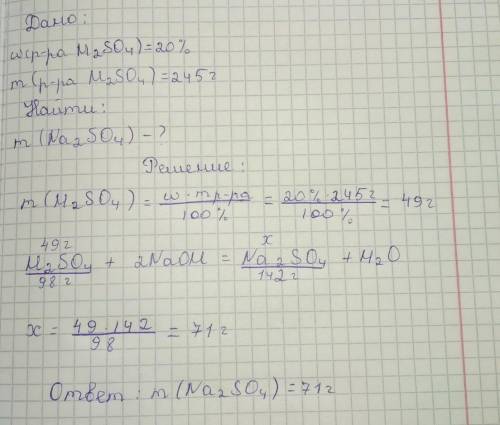 Дано:
w(р-ра H₂SO₄)=20%
m(р-ра H₂SO₄)=245г
Найти:
m(Na₂SO₄)-?
Решение:
m(H₂SO₄) = w·mр-ра/100% = 20%·245г/100% = 49г
49г x
H₂SO₄ + 2NaOH = Na₂SO₄ + H₂O
98г 142г
x = 49·142/98 = 71г
Ответ: m(Na₂SO₄)=71г